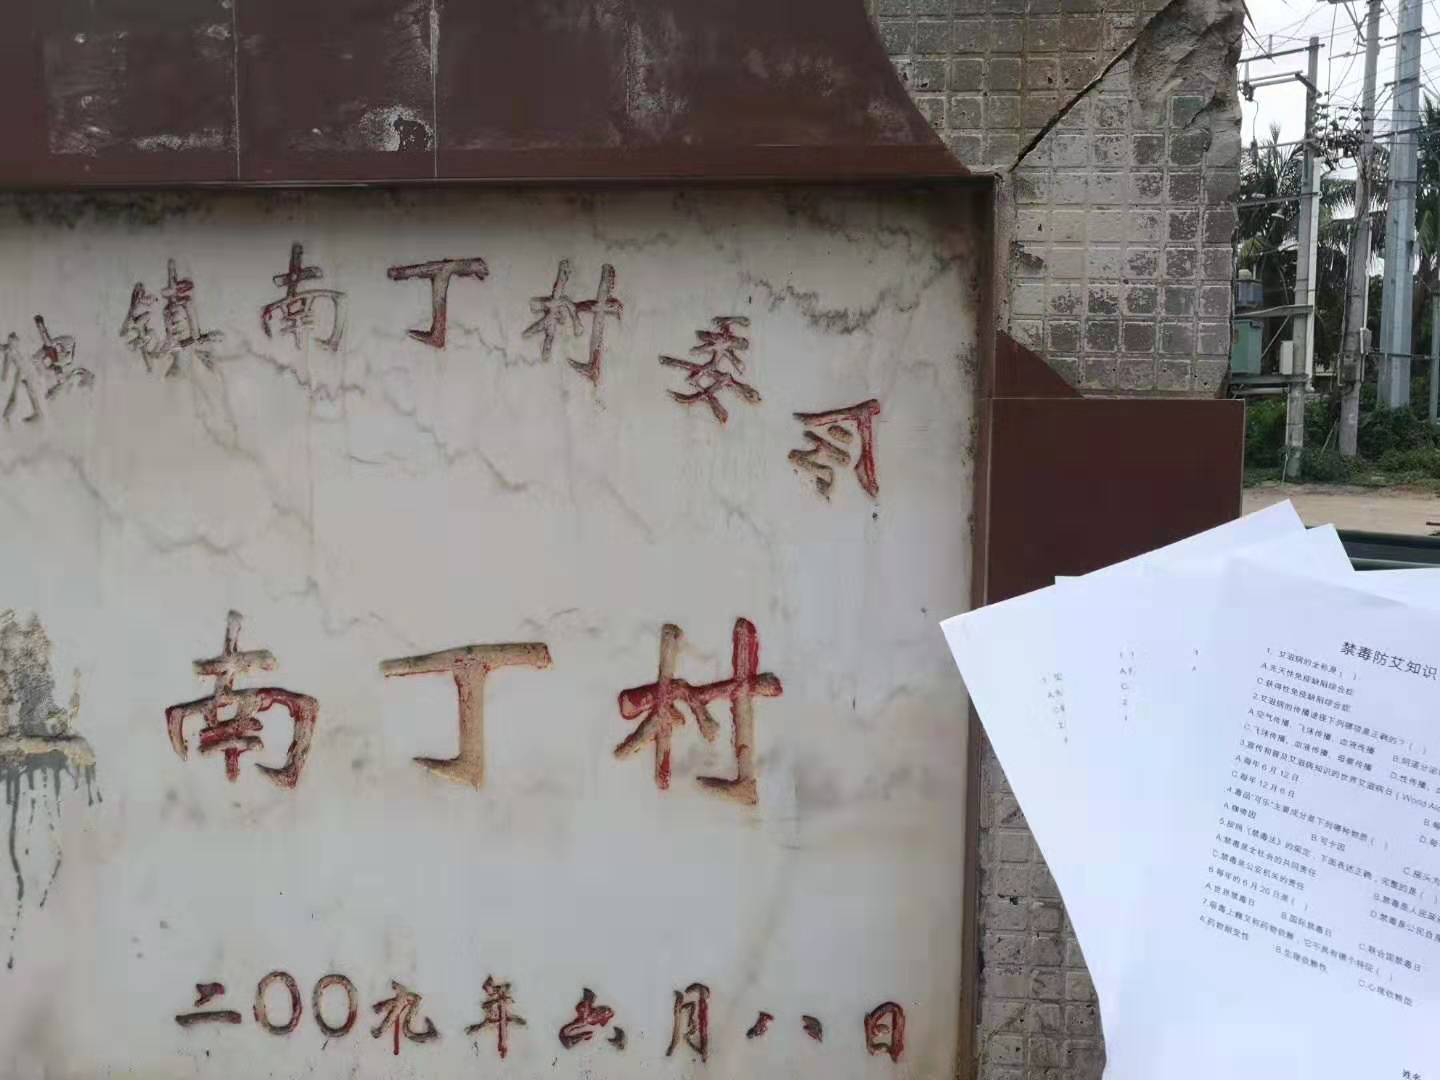 独镇南丁村委
南丁村
二〇〇九年六月八日
禁毒防艾知识
1. 艾滋病的全称是（ ）
A.先天性免疫缺陷综合症
C.获得性免疫缺陷综合症
2.艾滋病的传播途径下列哪项是正确的？（ ）
A.空气传播、飞沫传播、血液传播
C.飞沫传播、血液传播、母婴传播 D.性传播、
3.宣传和普及艾滋病知识的世界艾滋病日（World Aid
A.每年6月12日 B.每
C.每年12月6日 D.每
4.毒品“可乐”主要成分是下列哪种物质（ ）
A.咖啡因 B.可卡因 C.摇头
5.按照《禁毒法》的规定，下面表述正确、完整的是（ ）
A.禁毒是全社会的共同责任 B.禁毒是人民
C.禁毒是公安机关的责任 D.禁毒是公民自
6.每年的6月26日是（ ）
A.世界禁毒日 B.国际禁毒日 C.联合国禁毒日
7.吸毒上瘾又称药物依赖，它不具有哪个特征（ ）
A.药物耐受性 B.生理依赖性 C.心理依赖
姓名